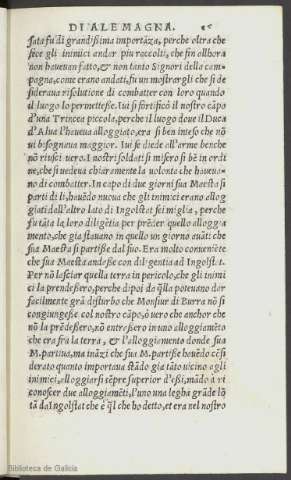 DI ALEMAGNA.
fata fu di grandissima importãza, perche oltra che
fece gli inimici andar piu raccolti, che fin allhora
non haueuan fatto, & non tanto Signori della cam-
pagna, come erano andati, fu un mostrar gli che si de
sideraua risolutione di combatter con loro quando
il luogo lo permettesse. Iui si fortificò il nostro cãpo
d'una Trincea piccola, perche il luogo doue il Duca
d'Alua l'haueua alloggiato, era si ben inteso che nõ
ui bisognaua maggior. Iui se diede all'arme benche
nõ riuscì uero. I nostri soldati si misero sì bẽ in ordi
ne, che si uedeua chiaramente la uolontà che haueua-
no di combatter. In capo di due giorni sua Maestà si
partì di lì, hauẽdo nuoua che gli inimici erano allog
giati dall'altro lato di Ingolstat sei miglia, perche
fu tãta la loro diligẽtia per prẽder quello alloggia
mento, che gia stauano in quello un giorno auãti che
sua Maestà si partisse dal suo. Era molto conueniẽte
che sua Maestà andasse con diligentia ad Ingolstat.
Per nõ lasciar quella terra in pericolo, che gli inimi
ci la prendessero, perche dipoi da q̃lla poteuano dar
facilmente grã disturbo che Monsiur di Burra nõ si
congiungesse col nostro cãpo, ò uero che anchor che
nõ la prẽdessero, nõ entrassero in uno alloggiamẽto
che era fra la terra, & l'alloggiamento donde sua
M. partiua, ma inãzi che sua M. partisse hauẽdo cõsi
derato quanto importaua stãdo gia tãto uicino agli
inimici, alloggiarsi sẽpre superior d'essi, mãdò à ri
conoscer due alloggiamẽti, l'uno una legha grãde lõ
tã da Ingolstat che è q̃l che ho detto, et era nel nostro
Biblioteca de Galicia